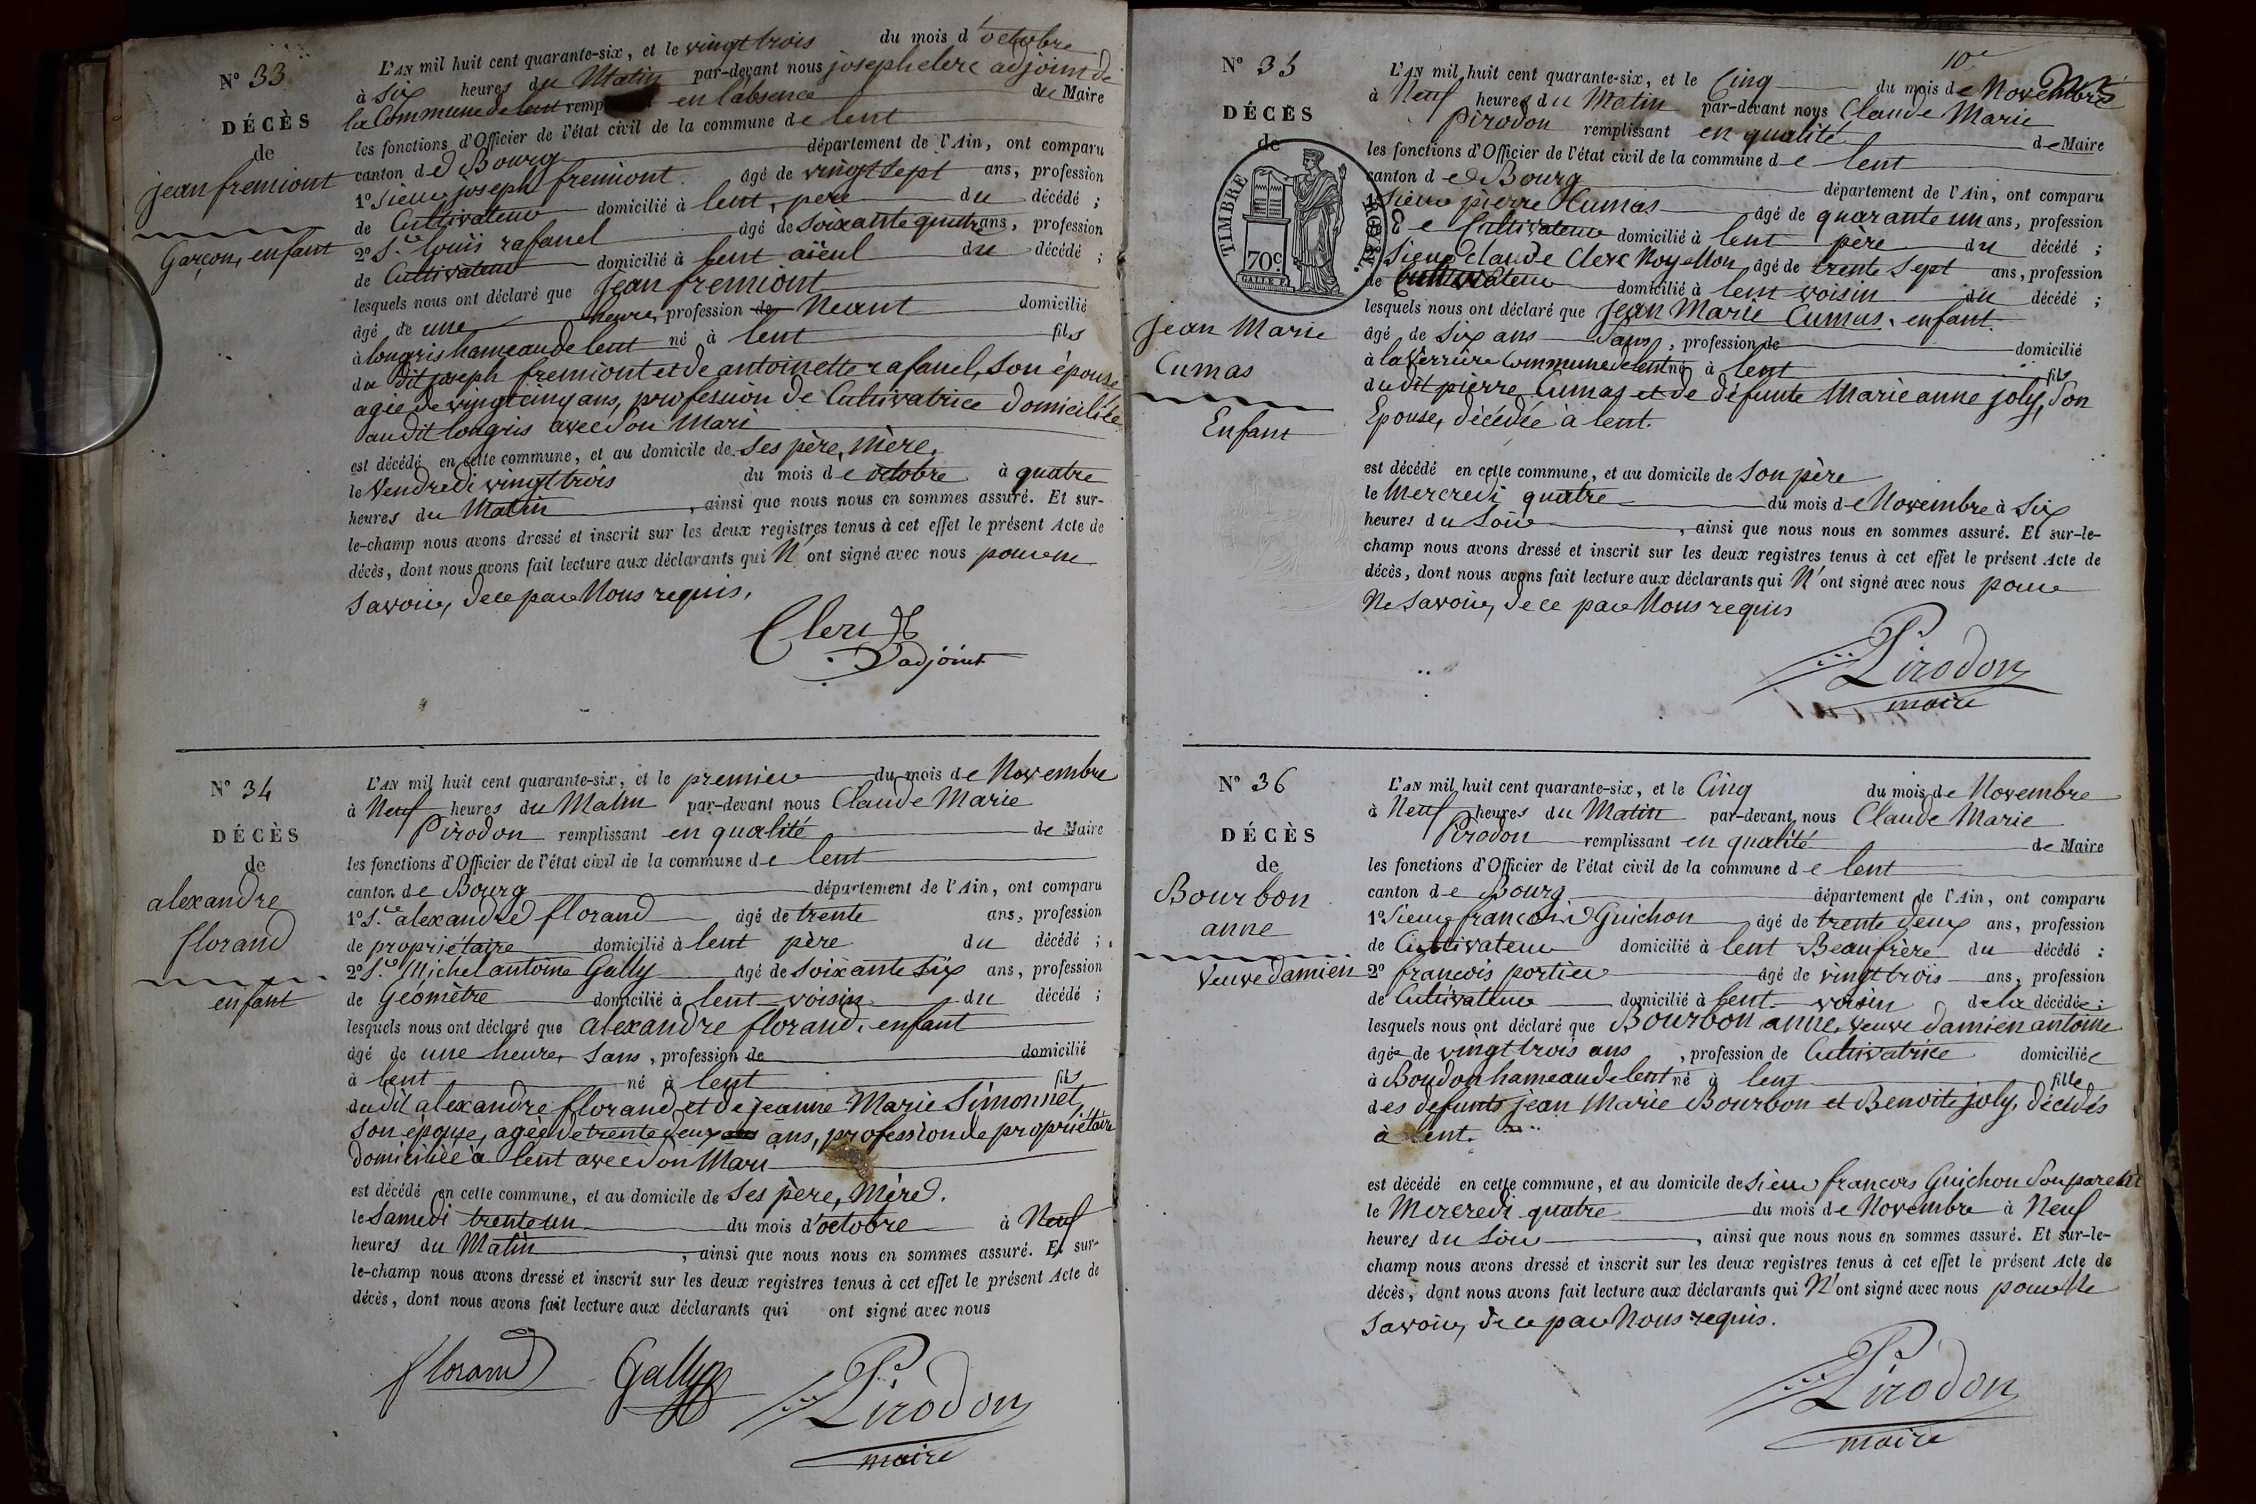 N° 33
DÉCÈS
de
jean fremiont
Garçon, enfant
L'AN mil huit cent quarante-six, et le vingt trois du mois d'octobre
à six heures du Matin par-devant nous joseph clerc adjoint de
la Commune de lent remp en l'absence du Maire
les fonctions d'Officier de l'état civil de la commune de lent
canton de Bourg département de l'Ain, ont comparu
1° Sieur joseph fremiont âgé de vingt sept ans, profession
de Cultivateur domicilié à lent, père du décédé ;
2° S.r louis rafanel âgé de soixante quatre ans, profession
de Cultivateur domicilié à lent aïeul du décédé ;
lesquels nous ont déclaré que jean fremiont
âgé de une heure, profession de Neant domicilié
à longris hameau de lent né à lent fils
du dit joseph fremiont et de antoinette rafanel, son épouse
agée de vingt cinq ans, profession de Cultivatrice domiciliée
audit longris avec son Mari
est décédé en cette commune, et au domicile de ses père, mère.
le Vendredi vingt trois du mois de octobre à quatre
heures du Matin, ainsi que nous nous en sommes assuré. Et sur-
le-champ nous avons dressé et inscrit sur les deux registres tenus à cet effet le présent Acte de
décès, dont nous avons fait lecture aux déclarants qui N'ont signé avec nous pour ne
savoir, de ce par Nous requis.
Clerc
adjoint
N° 34
DÉCÈS
de
alexandre
florand
enfant
L'AN mil huit cent quarante-six, et le premier du mois de Novembre
à Neuf heures du Matin par-devant nous Claude Marie
Pirodon remplissant en qualité de Maire
les fonctions d'Officier de l'état civil de la commune de lent
canton de Bourg département de l'Ain, ont comparu
1° S.r alexandre florand âgé de trente ans, profession
de propriétaire domicilié à lent père du décédé ;
2° S.r Michel antoine Gally âgé de soixante six ans, profession
de Géomètre domicilié à lent voisin du décédé ;
lesquels nous ont déclaré que alexandre florand, enfant
âgé de une heure, sans, profession de domicilié
à lent né à lent fils
du dit alexandre florand et de jeanne Marie Simonnet,
son épouse, agée de trente deux ans, profession de propriétaire
domiciliée à lent avec son Mari
est décédé en cette commune, et au domicile de ses père, Mère.
le Samedi trente un du mois d'octobre à Neuf
heures du Matin, ainsi que nous nous en sommes assuré. Et sur-
le-champ nous avons dressé et inscrit sur les deux registres tenus à cet effet le présent Acte de
décès, dont nous avons fait lecture aux déclarants qui ont signé avec nous
florand Gally Pirodon
maire
10e
N° 35
DÉCÈS
de
TIMBRE ROYAL
70c
Jean Marie
Cumas
Enfant
L'AN mil huit cent quarante-six, et le Cinq du mois de Novembre
à Neuf heures du Matin par-devant nous Claude Marie
Pirodon remplissant en qualité de Maire
les fonctions d'Officier de l'état civil de la commune de lent
canton de Bourg département de l'Ain, ont comparu
Sieur pierre Cumas âgé de quarante un ans, profession
de Cultivateur domicilié à lent père du décédé ;
Sieur Claude Clerc Noyellon âgé de trente sept ans, profession
de Cultivateur domicilié à lent voisin du décédé ;
lesquels nous ont déclaré que jean Marie Cumas, enfant.
âgé de six ans sans, profession de domicilié
à la Verrière Commune de lent né à lent fils
du dit pierre Cumas et de défunte Marie anne joly, son
Epouse, décédée à lent.
est décédé en cette commune, et au domicile de son père
le Mercredi quatre du mois de Novembre à six
heures du soir, ainsi que nous nous en sommes assuré. Et sur-le-
champ nous avons dressé et inscrit sur les deux registres tenus à cet effet le présent Acte de
décès, dont nous avons fait lecture aux déclarants qui N'ont signé avec nous pour
Ne savoir, de ce par Nous requis
Pirodon
maire
N° 36
DÉCÈS
de
Bourbon
anne
Veuve damien
L'AN mil huit cent quarante-six, et le Cinq du mois de Novembre
à Neuf heures du Matin par-devant nous Claude Marie
Pirodon remplissant en qualité de Maire
les fonctions d'Officier de l'état civil de la commune de lent
canton de Bourg département de l'Ain, ont comparu
1° Sieur francois Guichon âgé de trente deux ans, profession
de Cultivateur domicilié à lent Beaufrère du décédé :
2° francois portier âgé de vingt trois ans, profession
de Cultivateur domicilié à lent voisin de la décédée ;
lesquels nous ont déclaré que Bourbon anne, veuve damien antoine
âgée de vingt trois ans, profession de Cultivatrice domiciliée
à Boudon hameau de lent né à lent fille
des defunts jean Marie Bourbon et Benoite joly, décédés
à lent.
est décédé en cette commune, et au domicile de Sieur francois Guichon son parent
le Mercredi quatre du mois de Novembre à Neuf
heures du soir, ainsi que nous nous en sommes assuré. Et sur-le-
champ nous avons dressé et inscrit sur les deux registres tenus à cet effet le présent Acte de
décès, dont nous avons fait lecture aux déclarants qui N'ont signé avec nous pour Ne
savoir, de ce par Nous requis.
Pirodon
maire